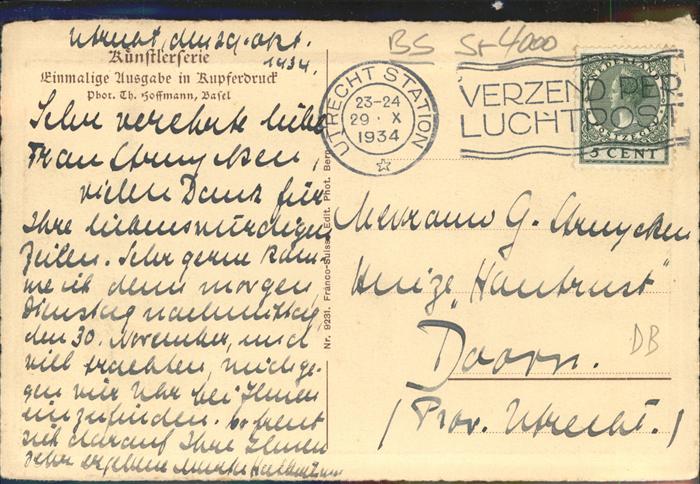 Utrecht, den 29. Okt.
1934.
Künstlerserie
Einmalige Ausgabe in Kupferdruck
Phot. Th. Hoffmann, Basel
Sehr verehrte liebe
Frau
vielen Dank für
Ihre liebenswürdigen
Zeilen. Sehr gerne kom-
me ich denn morgen,
Dienstag nachmittag,
den 30. November, und
will trachten, mich ge-
gen vier Uhr bei Ihnen
einzufinden. Es freut
sich darauf Ihre Ihnen
sehr ergebene
Nr. 9231. Franco-Suisse, Edit. Phot. Bern
BS St 4000
UTRECHT STATION
23-24
29 · X
1934
VERZEND PER
LUCHTPOST
NEDERLAND
POSTZEGEL
5 CENT
Mevrouw G.
Huize „Hautrust"
Doorn.
(Prov. Utrecht.)
DB